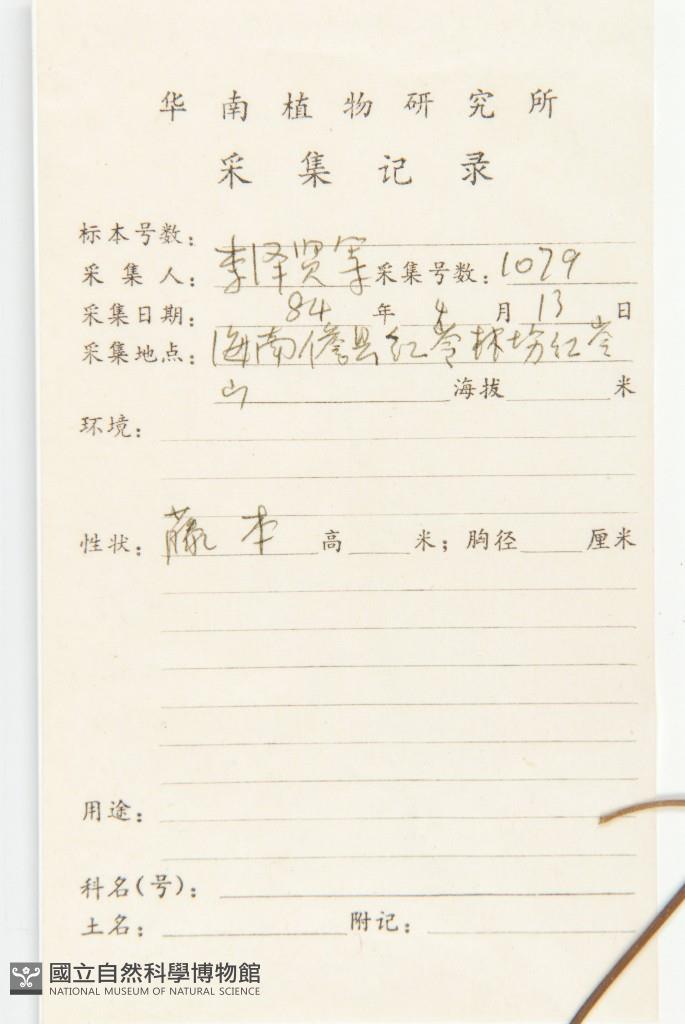 华南植物研究所
采集记录
标本号数:
采集人: 李泽贤等 采集号数: 1079
采集日期: 84 年 4 月 13 日
采集地点: 海南儋县红岺林场红岺
山 海拔 米
环境:
性状: 藤本 高 米; 胸径 厘米
用途:
科名(号):
土名: 附记:
國立自然科學博物館
NATIONAL MUSEUM OF NATURAL SCIENCE